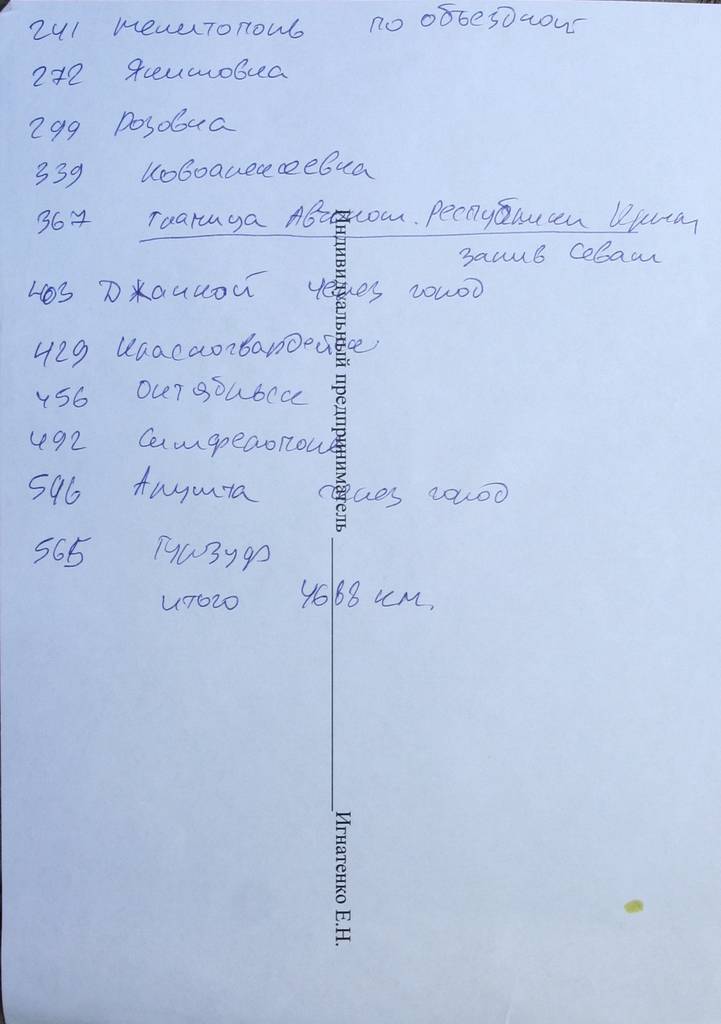 241 Мелитополь по объездной
272 Якимовка
299 Розовка
339 Новоалексеевка
367 Граница Автоном. Республики Крым
залив Сиваш
403 Джанкой через город
429 Красногвардейское
456 Октябрьское
492 Симферополь
546 Алушта через город
565 Гурзуф
итого 4688 км.
Индивидуальный предприниматель
Игнатенко Е.Н.